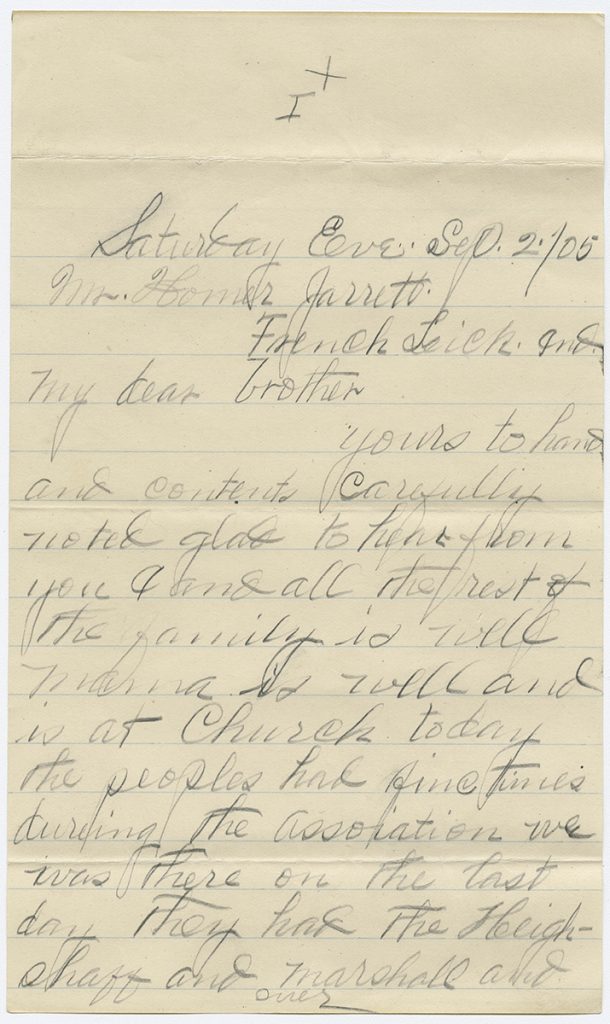 I +
Saturday Eve. Sep. 2./05
Mr. Homer Jarrett.
French Leick. Ind.
My dear brother
yours to hand
and contents carefully
noted glad to hear from
you I and all the rest of
the family is well
mama is well and
is at Church today
the peoples had fine times
dureing the association we
was there on the last
day they had the Heigh-
shaff and marshall and
over